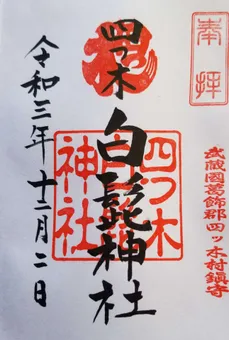 奉拝
武蔵國葛飾郡四ツ木村鎮守
四つ木
白髭神社
四つ木
白髭
神社
令和三年十二月二日